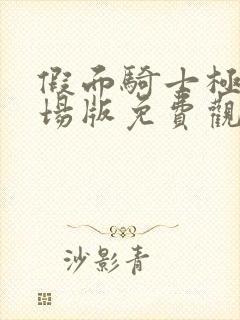 假而騎士極
場版免費觀
沙影青